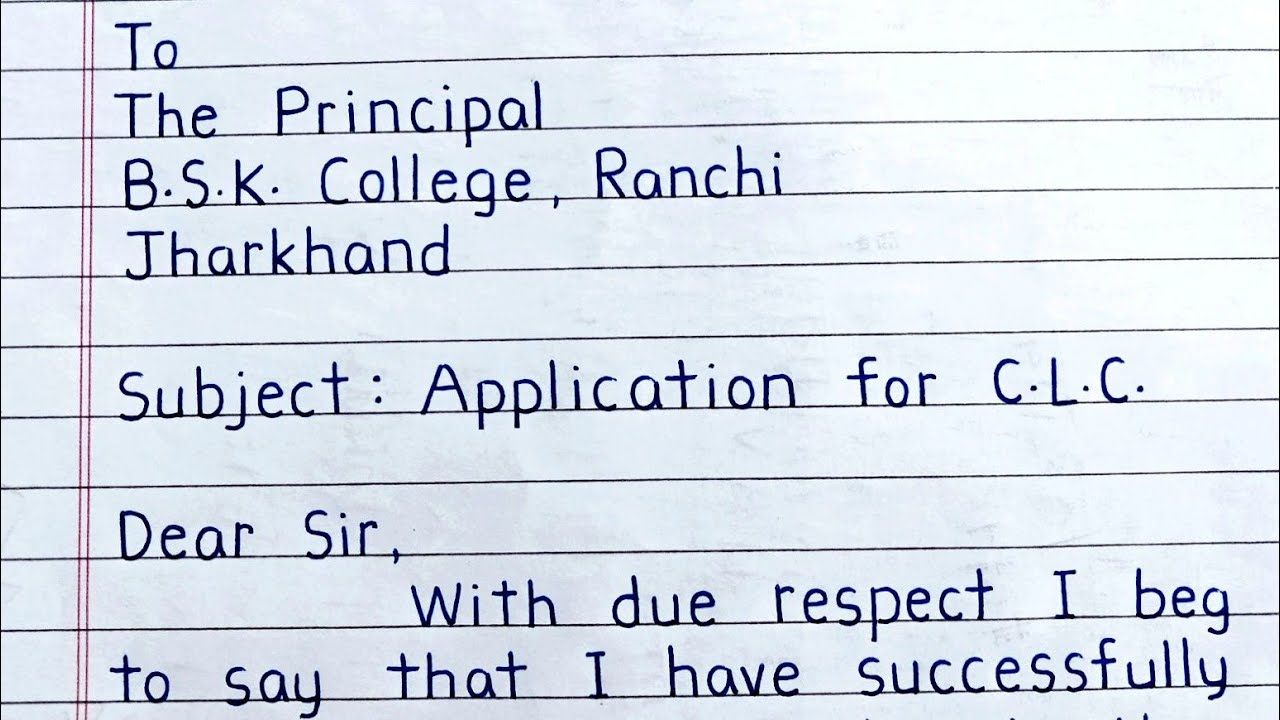 To
The Principal
B.S.K. College, Ranchi
Jharkhand
Subject: Application for C.L.C.
Dear Sir,
With due respect I beg
to say that I have successfully